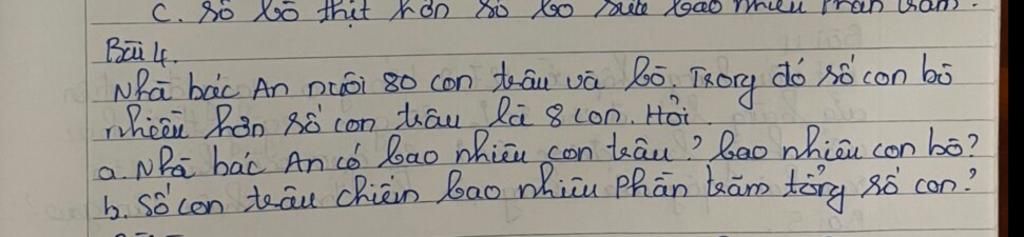 c. Số bò thịt hơn số bò sữa bao nhiêu phần trăm.
Bài 4.
Nhà bác An nuôi 80 con trâu và bò. Trong đó số con bò
nhiều hơn số con trâu là 8 con. Hỏi.
a. Nhà bác An có bao nhiêu con trâu? bao nhiêu con bò?
b. Số con trâu chiếm bao nhiêu phần trăm tổng số con?